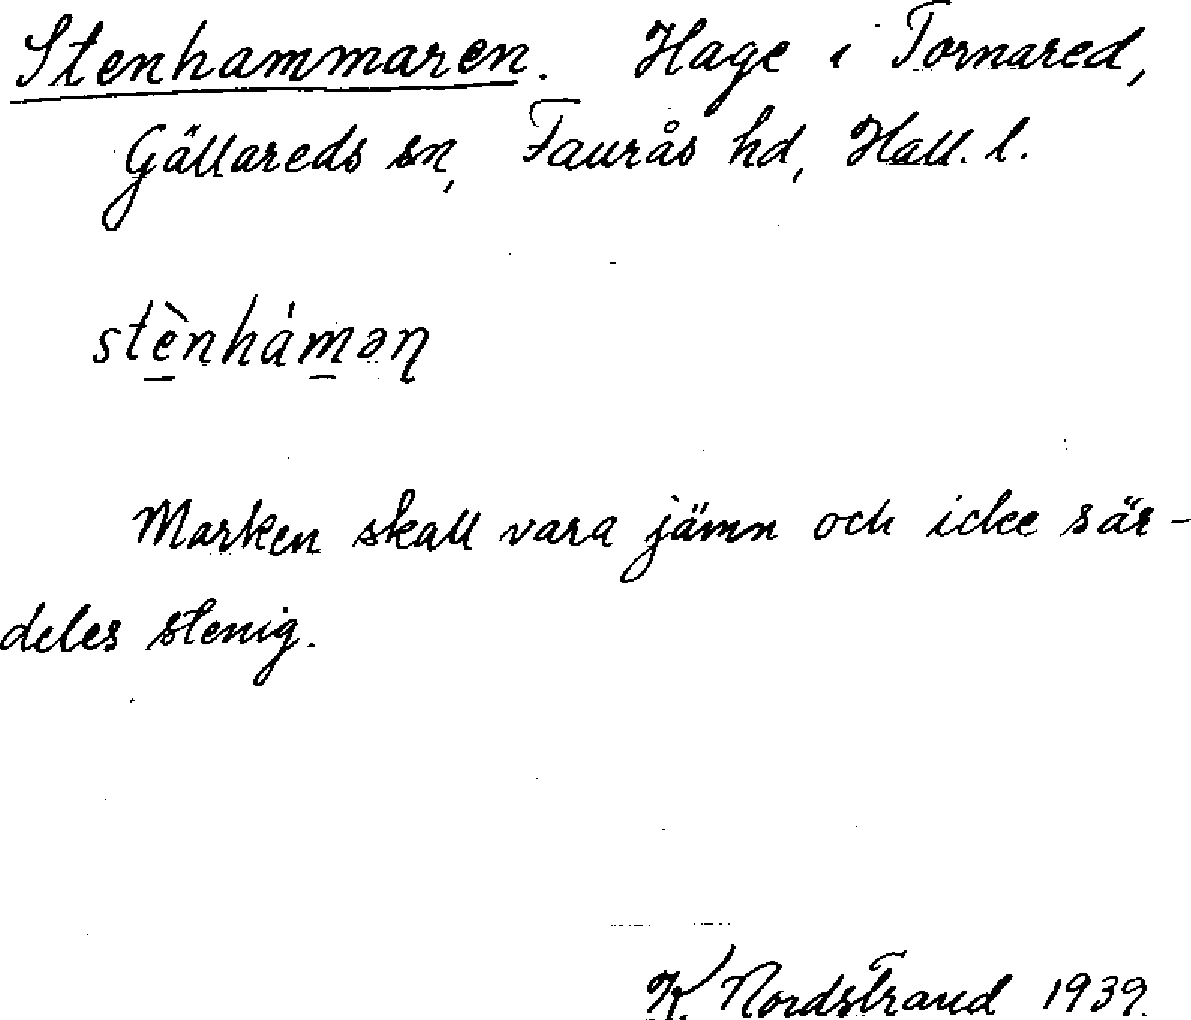 Stenhammaren. Hage i Tornared,
Gällareds sn, Faurås hd, Hall. l.
stè̱nhám̱əɳ
Marken skall vara jämn och icke sär-
deles stenig.
K. Nordstrand 1939.